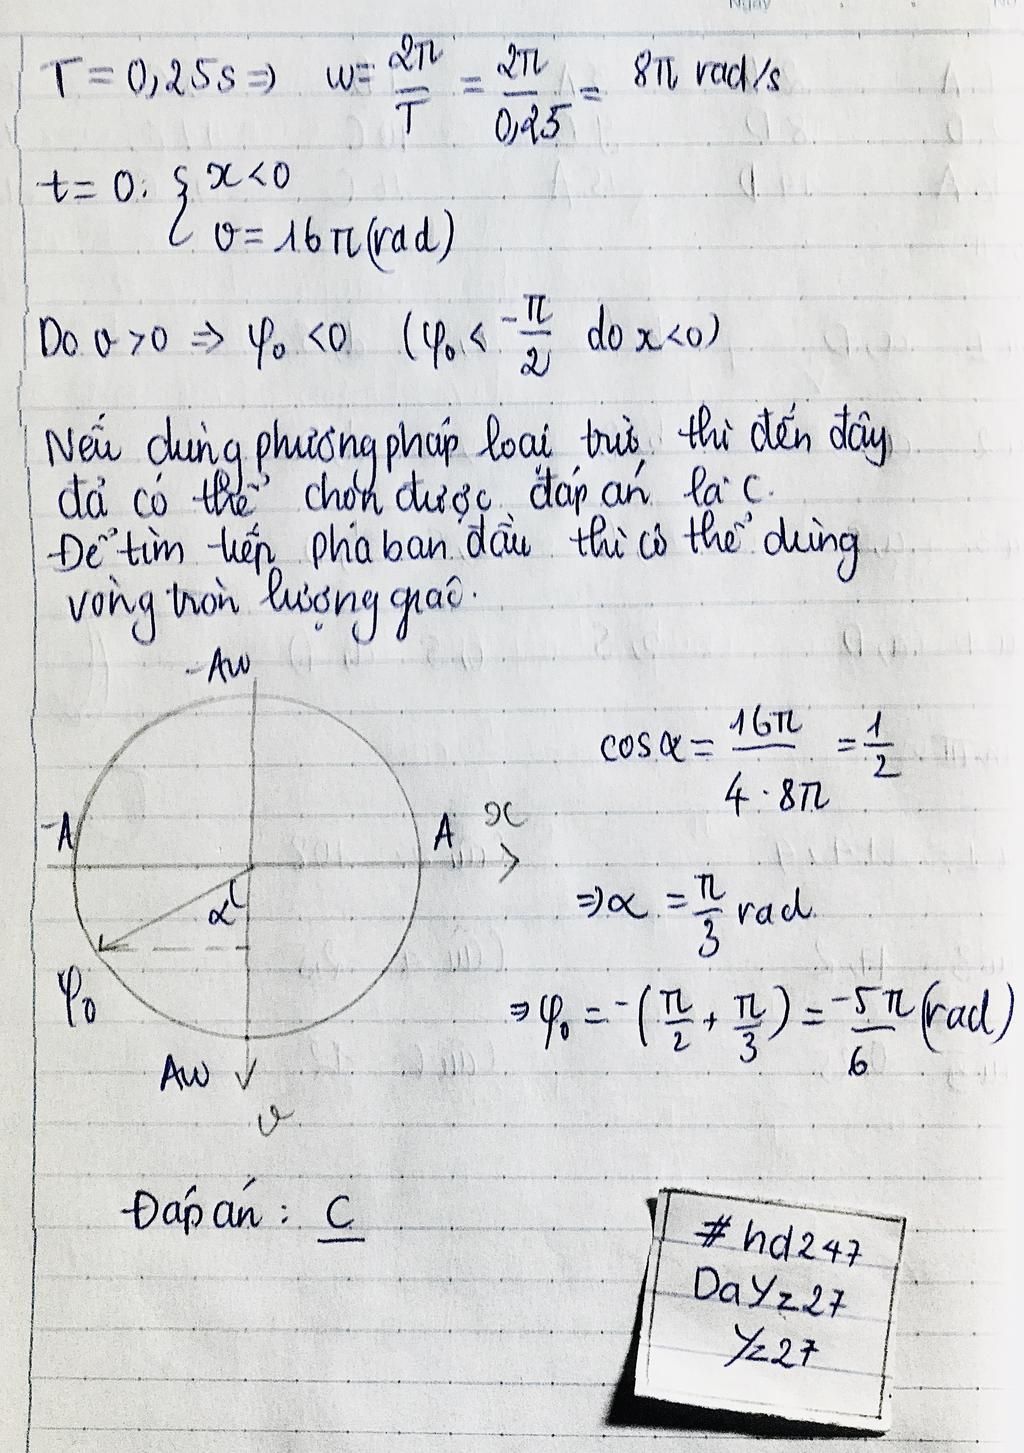 Ngày
T = 0,25s ⇒ w = 2π/T = 2π/0,25 = 8π rad/s
t = 0: { x < 0
v = 16π (rad)
Do v > 0 ⇒ φ₀ < 0 (φ₀ < -π/2 do x < 0)
Nếu dùng phương pháp loại trừ thì đến đây
đã có thể chọn được đáp án là C.
Để tìm tiếp pha ban đầu thì có thể dùng
vòng tròn lượng giác.
-Aw
cos α = 16π/4·8π = 1/2
-A A x
α
⇒ α = π/3 rad
φ₀
⇒ φ₀ = -(π/2 + π/3) = -5π/6 (rad)
Aw
v
Đáp án: C
#hd247
DaYz27
Yz27